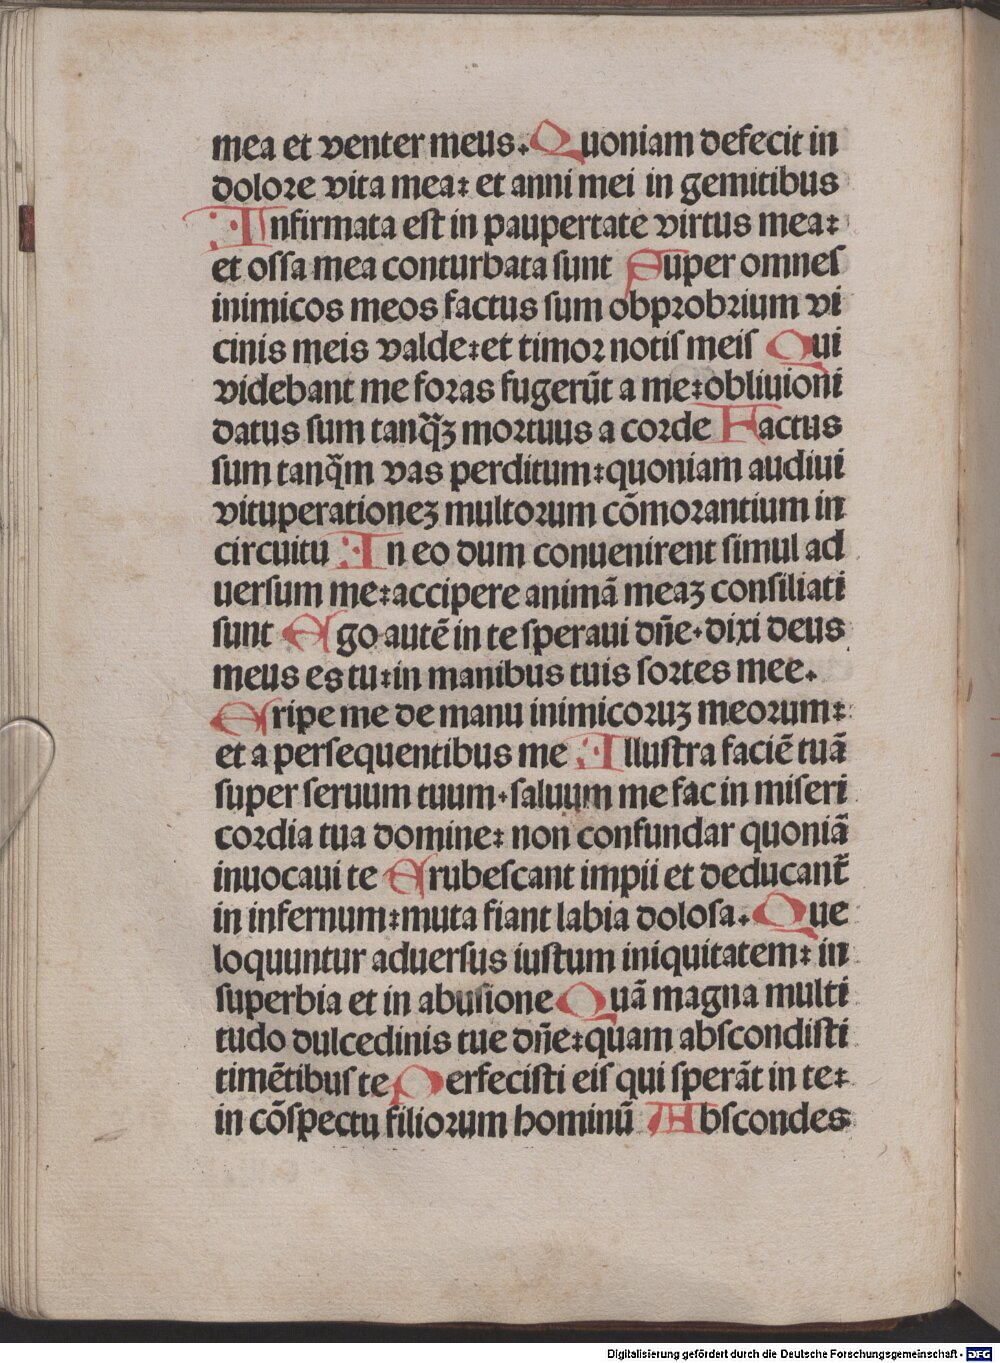 mea et venter meus. Quoniam defecit in
dolore vita mea: et anni mei in gemitibus
Infirmata est in paupertate virtus mea:
et ossa mea conturbata sunt Super omnes
inimicos meos factus sum obprobrium vi
cinis meis valde: et timor notis meis Qui
videbant me foras fugerūt a me: obliuioni
datus sum tanq̃ꝫ mortuus a corde Factus
sum tanq̃m vas perditum: quoniam audiui
vituperationeꝫ multorum cōmorantium in
circuitu In eo dum conuenirent simul ad
uersum me: accipere animā meaꝫ consiliati
sunt Ego autē in te speraui dn̄e. dixi deus
meus es tu: in manibus tuis sortes mee.
Eripe me de manu inimicoruꝫ meorum:
et a persequentibus me Illustra faciē tuā
super seruum tuum. saluum me fac in miseri
cordia tua domine: non confundar quoniā
inuocaui te Erubescant impii et deducant̄
in infernum: muta fiant labia dolosa. Que
loquuntur aduersus iustum iniquitatem: in
superbia et in abusione Quā magna multi
tudo dulcedinis tue dn̄e: quam abscondisti
timētibus te Perfecisti eis qui sperāt in te:
in cōspectu filiorum hominū Abscondes
Digitalisierung gefördert durch die Deutsche Forschungsgemeinschaft - DFG